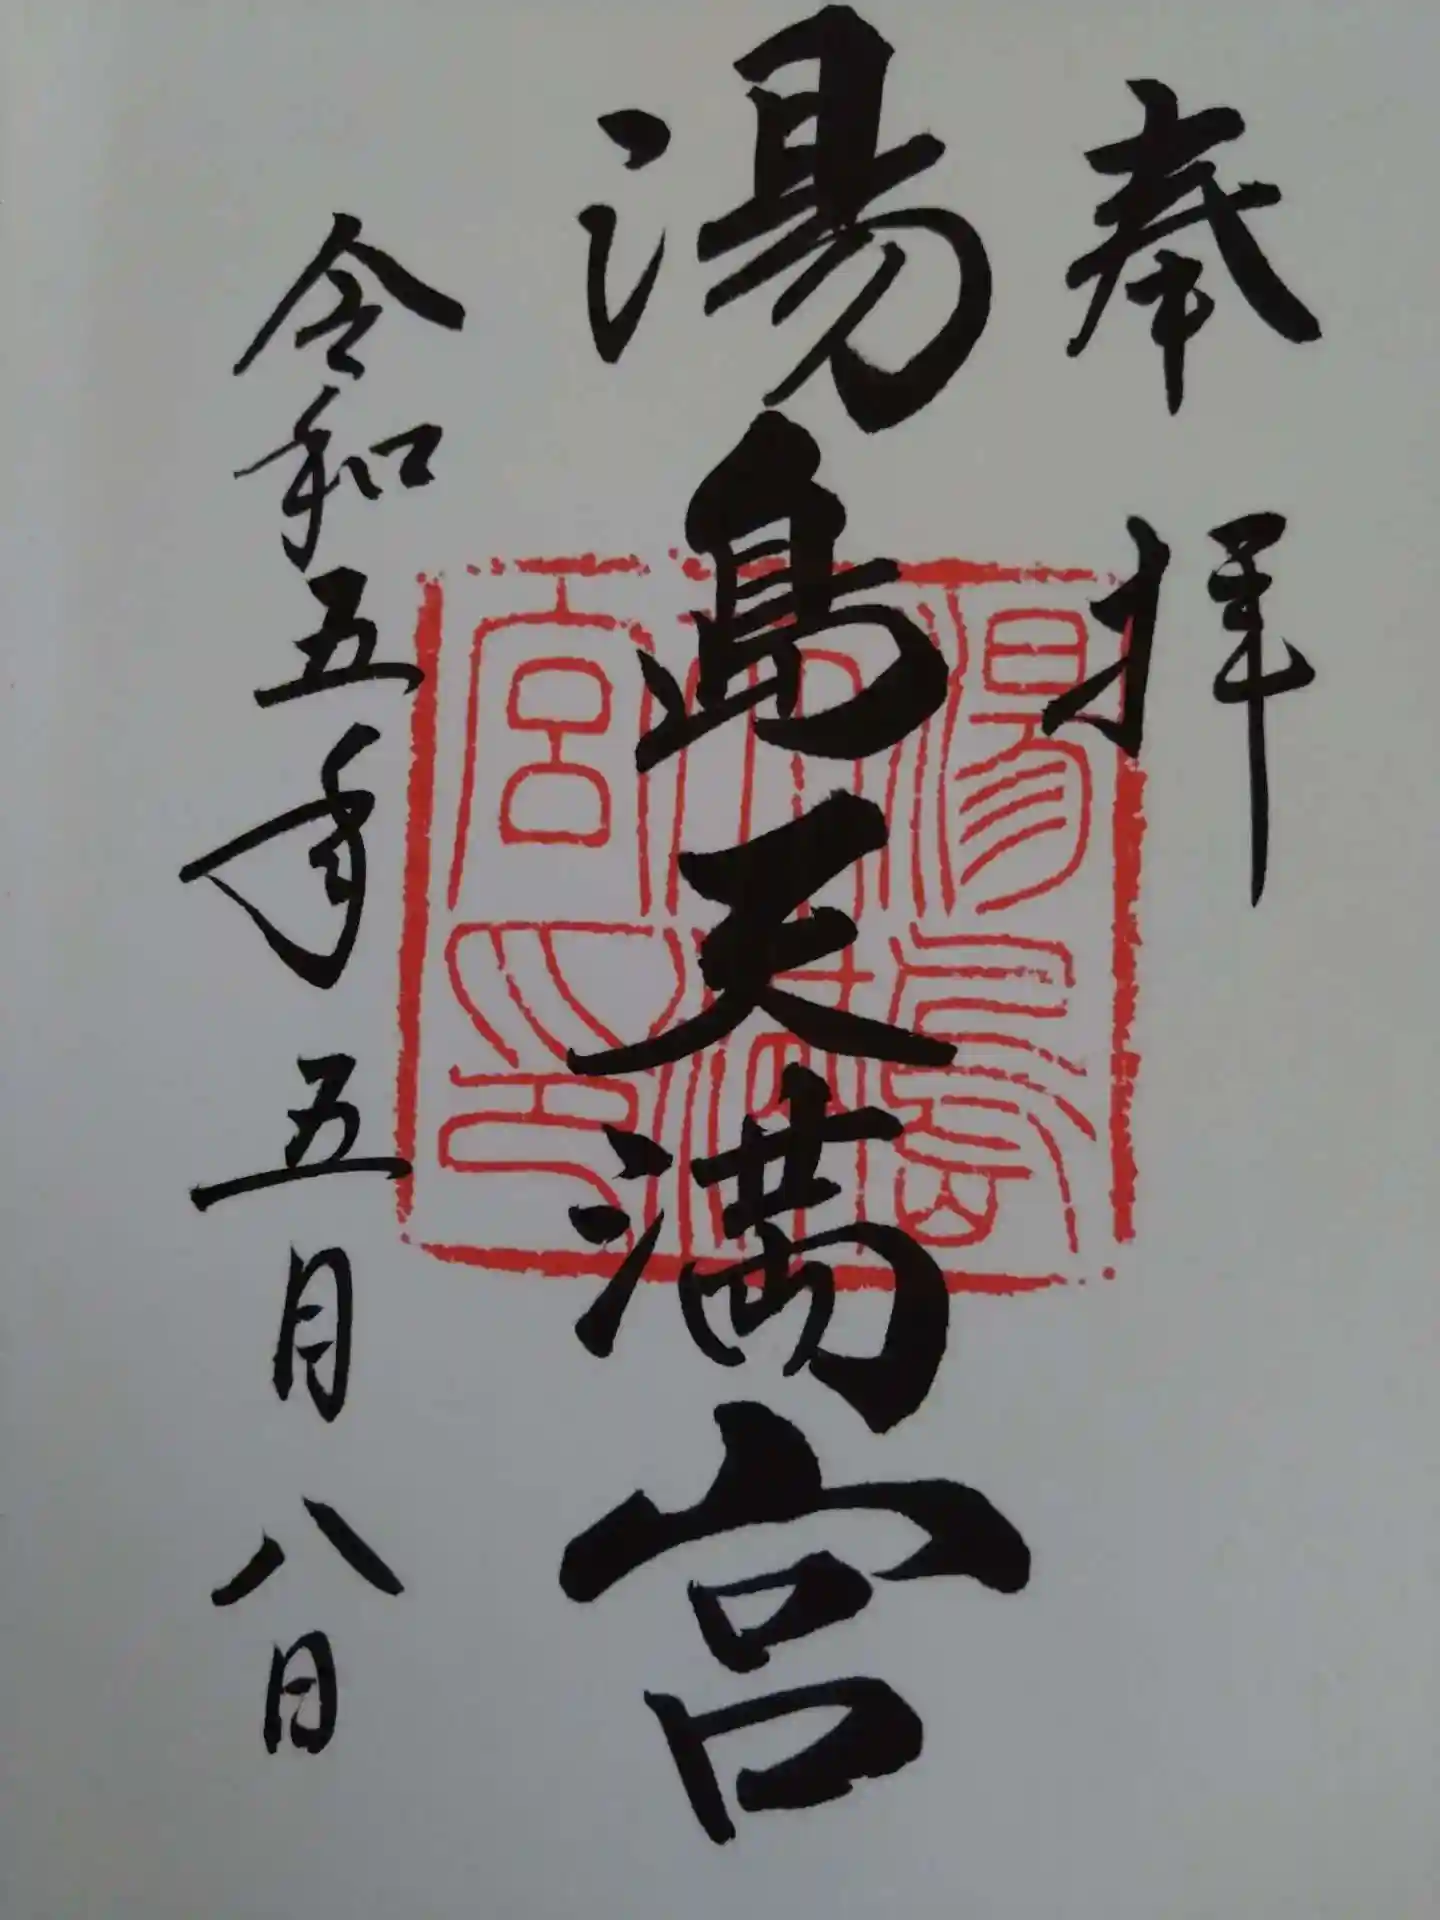 奉拝
湯島天満宮
湯島天満宮之印
令和五年五月八日